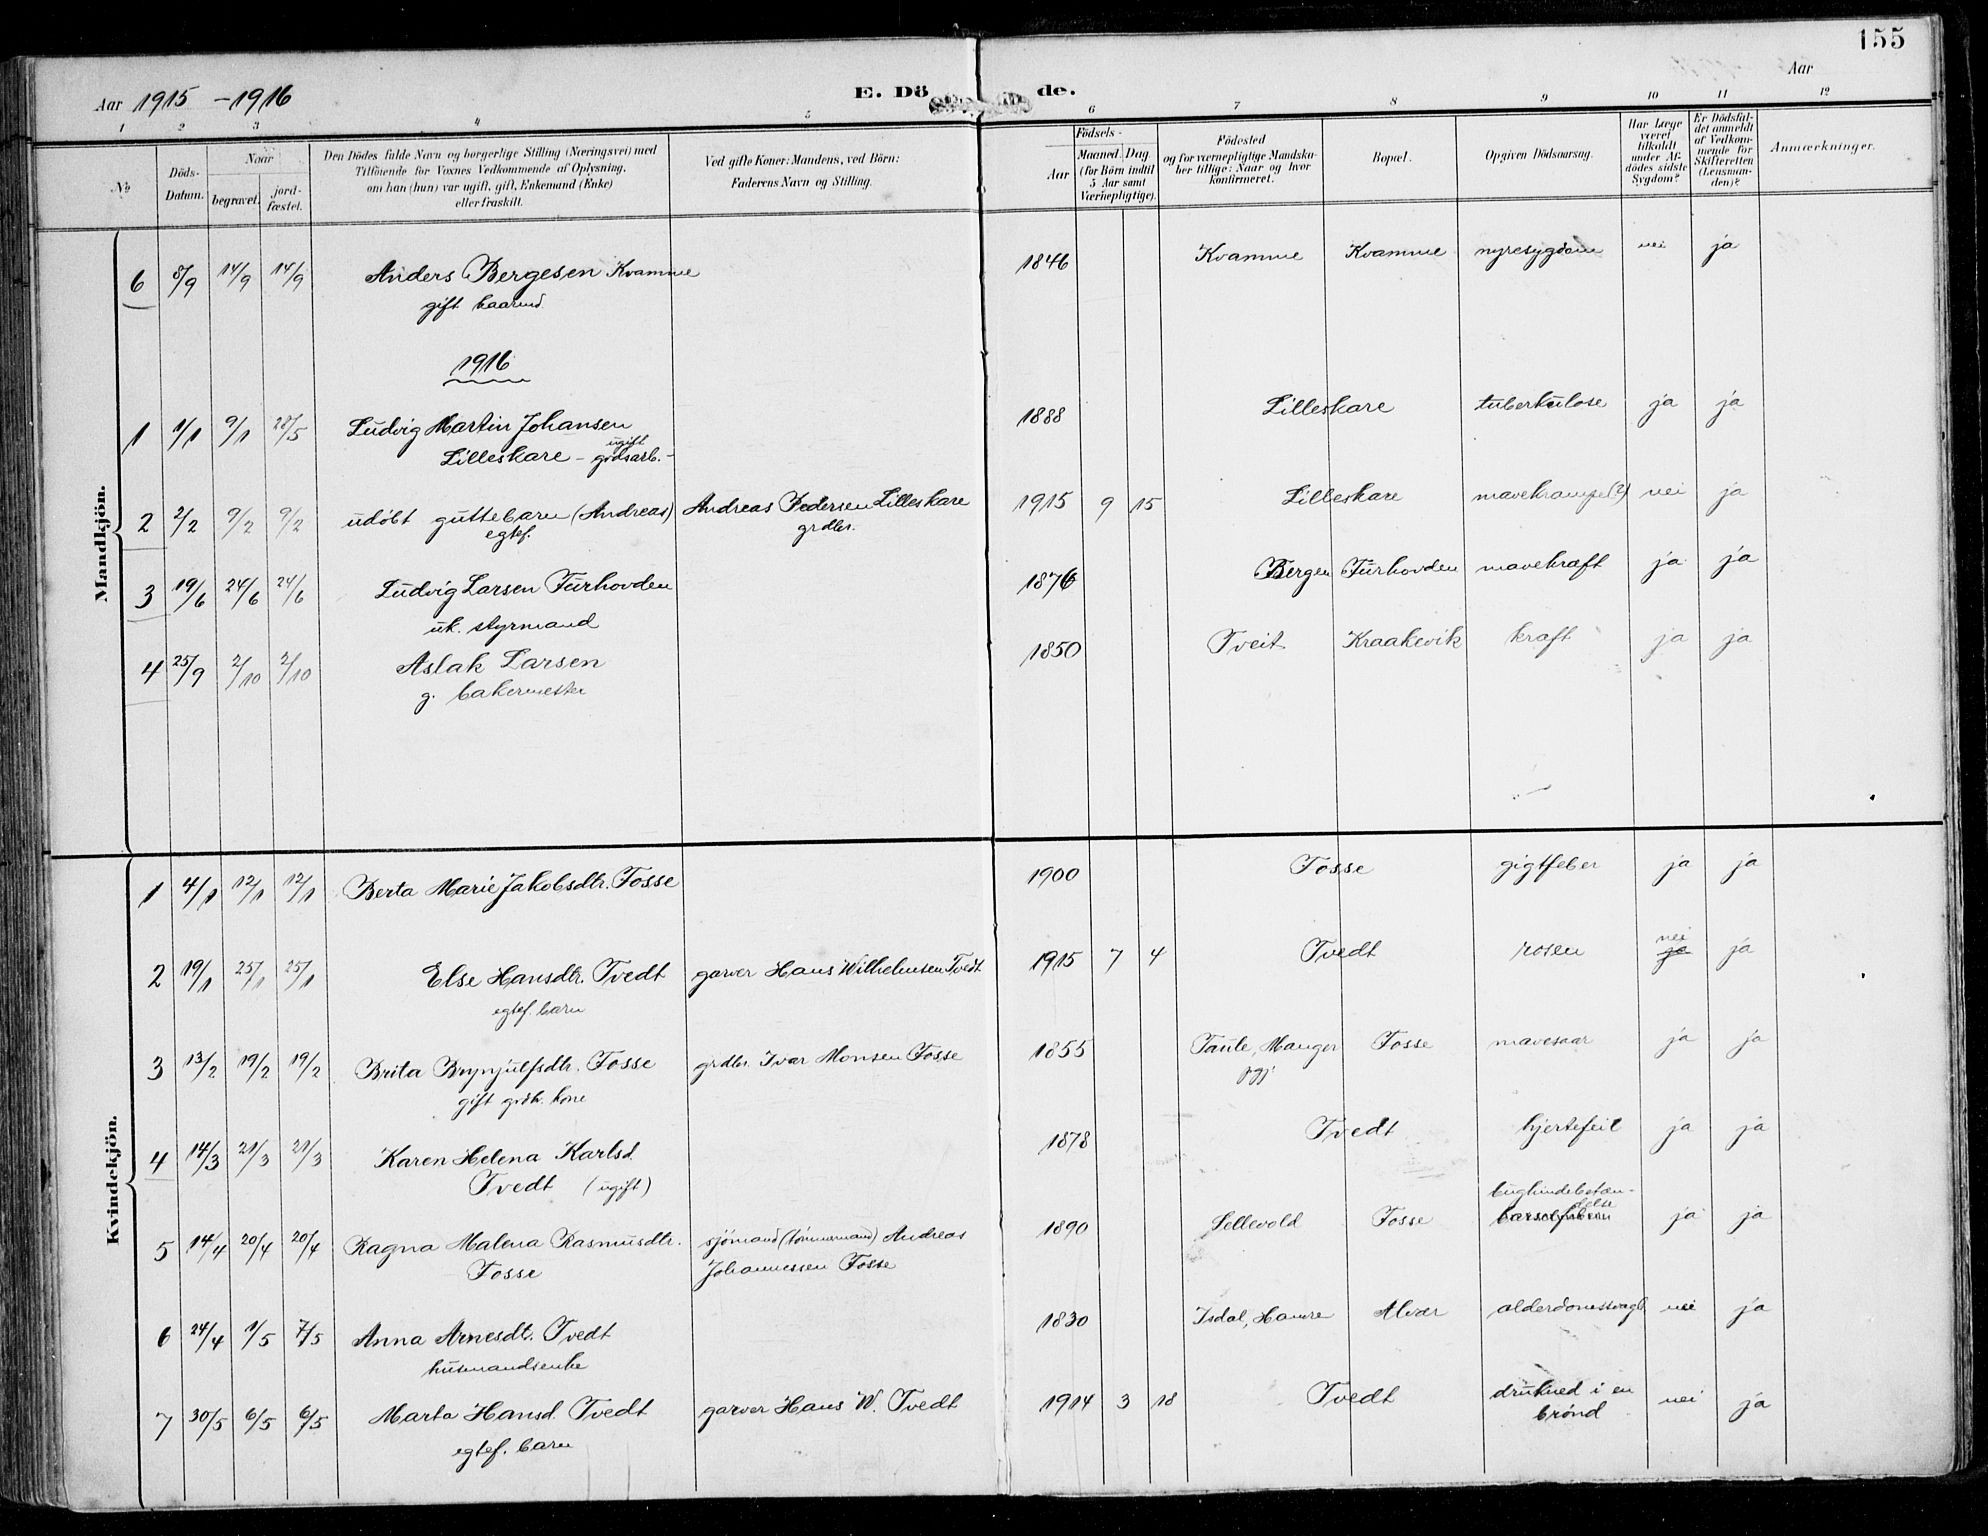 155
Aar 1915 - 1916 E. Dö de. Aar
1 2 3 4 5 6 7 8 9 10 11 12
№ Döds-Datum. Naar begravet. jord-fæstet. Den Dödes fulde Navn og borgerlige Stilling (Næringsvei) med Tilföiende for Voxnes Vedkommende af Oplysning, om han (hun) var ugift, gift, Enkemand (Enke) eller fraskilt. Ved gifte Koner: Mandens, ved Börn: Faderens Navn og Stilling. Födsels- Aar Maaned. Dag. (for Börn indtil 5 Aar samt Værnepligtige). Födested og for værnepligtige Mandskaber tillige: Naar og hvor konfirmeret. Bopæl. Opgiven Dödsaarsag. Har Læge været tilkaldt under Afdödes sidste Sygdom? Er Dödsfaldet anmeldt af Vedkommende for Skifteretten (Lensmanden)? Anmærkninger.
Mandkjön.
6 8/9 14/9 14/9 Anders Bergesen Kvamme 1846 Kvamme Kvamme nyresygdom nei ja
gift kaarmd.
1916
1 1/1 9/1 28/5 Ludvig Martin Johansen 1888 Lilleskare tuberkulose ja ja
ugift
Lilleskare - grdsarb. -
2 2/2 9/2 9/2 udöbt guttebarn (Andreas) Andreas Pedersen Lilleskare 1915 9 15 Lilleskare mavekrampe(?) nei ja
egtef. grdbr.
3 19/6 24/6 24/6 Ludvig Larsen Furhovden 1876 Bergen Furhovden mavekræft ja ja
uk. styrmand
4 25/9 2/10 2/10 Aslak Larsen 1850 Tveit Kraakevik kræft ja ja
g. bakermester
Kvindekjön.
1 4/1 12/1 12/1 Berta Marie Jakobsdtr. Fosse 1900 Fosse gigtfeber ja ja
2 19/1 25/1 25/1 Else Hansdtr. Tvedt garver Hans Wilhelmsen Tvedt 1915 7 4 Tvedt rosen nei ja ja
egtef. barn
3 13/2 19/2 19/2 Brita Brynjulfsdtr. Fosse grdbr. Ivar Monsen Fosse 1855 Taule, Manger Fosse mavesaar ja ja
gift grdbr. kone pgj.
4 14/3 21/3 21/3 Karen Helena Karlsd. 1878 Tvedt hjertefeil ja ja
Tvedt (ugift)
bughindebetæn-
delse
5 14/4 20/4 20/4 Ragna Malena Rasmusdtr. sjömand (tömmermand) Andreas 1890 Sellevold Fosse barselfeber ja ja
Fosse Johannessen Fosse
6 24/4 1/5 7/5 Anna Arnesdt. Tvedt 1830 Isdal, Hamre Alver alderdomssvagh. nei ja
husmandsenke
7 30/5 6/5 6/5 Marta Hansd. Tvedt garver Hans W. Tvedt 1914 3 18 Tvedt drukned i en nei ja
egtef. barn brönd